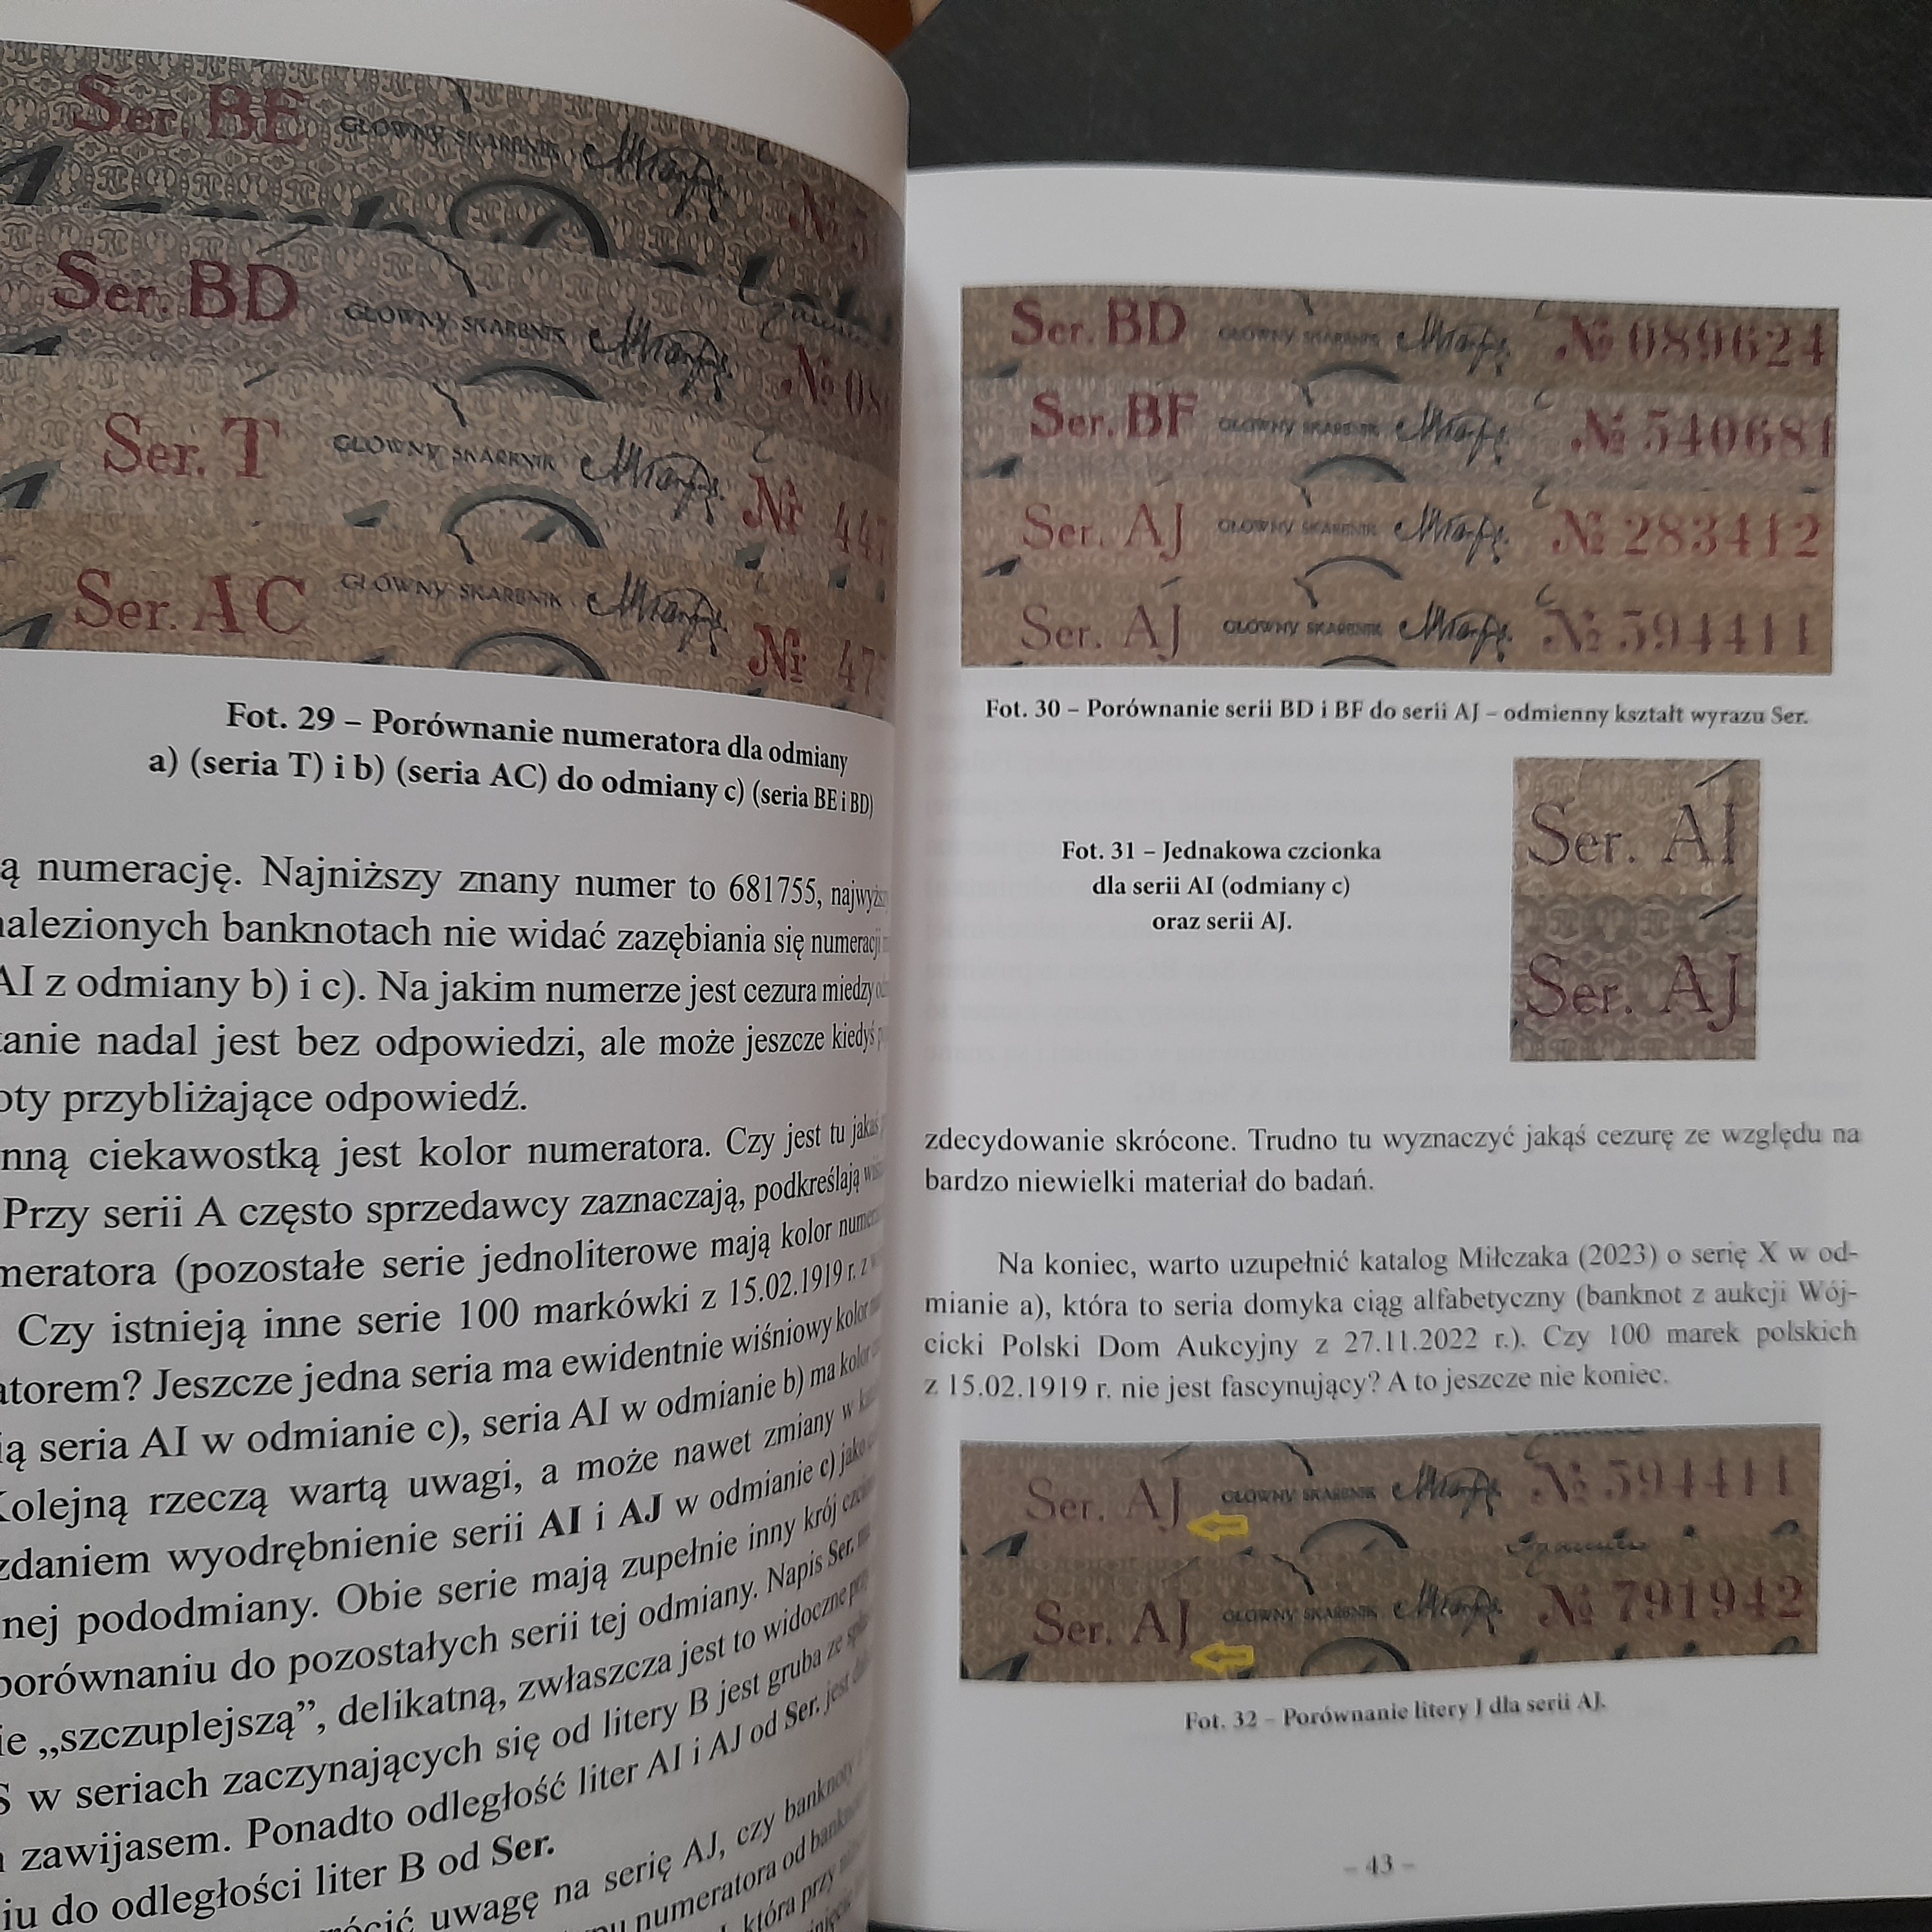 Ser. BE GŁOWNY SKARBNIK
Ser. BD GŁOWNY SKARBNIK № 08
Ser. T GŁOWNY SKARBNIK Nr 447
Ser. AC GŁOWNY SKARBNIK Nr 47
Fot. 29 – Porównanie numeratora dla odmiany
a) (seria T) i b) (seria AC) do odmiany c) (seria BE i BD)
ą numerację. Najniższy znany numer to 681755,
nalezionych banknotach nie widać zazębiania się numeracji
AI z odmiany b) i c). Na jakim numerze jest cezura miedzy
tanie nadal jest bez odpowiedzi, ale może jeszcze kiedyś
oty przybliżające odpowiedź.
nną ciekawostką jest kolor numeratora. Czy jest tu jakaś
Przy serii A często sprzedawcy zaznaczają, podkreślają
meratora (pozostałe serie jednoliterowe mają kolor
Czy istnieją inne serie 100 markówki z 15.02.1919 r. z
atorem? Jeszcze jedna seria ma ewidentnie wiśniowy kolor
ią seria AI w odmianie c), seria AI w odmianie b) ma kolor
Kolejną rzeczą wartą uwagi, a może nawet zmiany w
zdaniem wyodrębnienie serii AI i AJ w odmianie c) jako
nej pododmiany. Obie serie mają zupełnie inny krój
porównaniu do pozostałych serii tej odmiany. Napis Ser.
ie „szczuplejszą”, delikatną, zwłaszcza jest to widoczne
S w seriach zaczynających się od litery B jest gruba ze
zawijasem. Ponadto odległość liter AI i AJ od Ser. jest
iu do odległości liter B od Ser.
uwagę na serię AJ, czy banknoty
numeratora od
która przy
Ser. BD GŁOWNY SKARBNIK № 089624
Ser. BF GŁOWNY SKARBNIK № 540681
Ser. AJ GŁOWNY SKARBNIK № 283412
Ser. AJ GŁOWNY SKARBNIK № 594411
Fot. 30 – Porównanie serii BD i BF do serii AJ – odmienny kształt wyrazu Ser.
Fot. 31 – Jednakowa czcionka
dla serii AI (odmiany c)
oraz serii AJ.
Ser. AI
Ser. AJ
zdecydowanie skrócone. Trudno tu wyznaczyć jakąś cezurę ze względu na
bardzo niewielki materiał do badań.
Na koniec, warto uzupełnić katalog Miłczaka (2023) o serię X w od-
mianie a), która to seria domyka ciąg alfabetyczny (banknot z aukcji Wój-
cicki Polski Dom Aukcyjny z 27.11.2022 r.). Czy 100 marek polskich
z 15.02.1919 r. nie jest fascynujący? A to jeszcze nie koniec.
Ser. AJ GŁOWNY SKARBNIK № 594411
Ser. AJ GŁOWNY SKARBNIK № 791942
Fot. 32 – Porównanie litery J dla serii AJ.
– 43 –